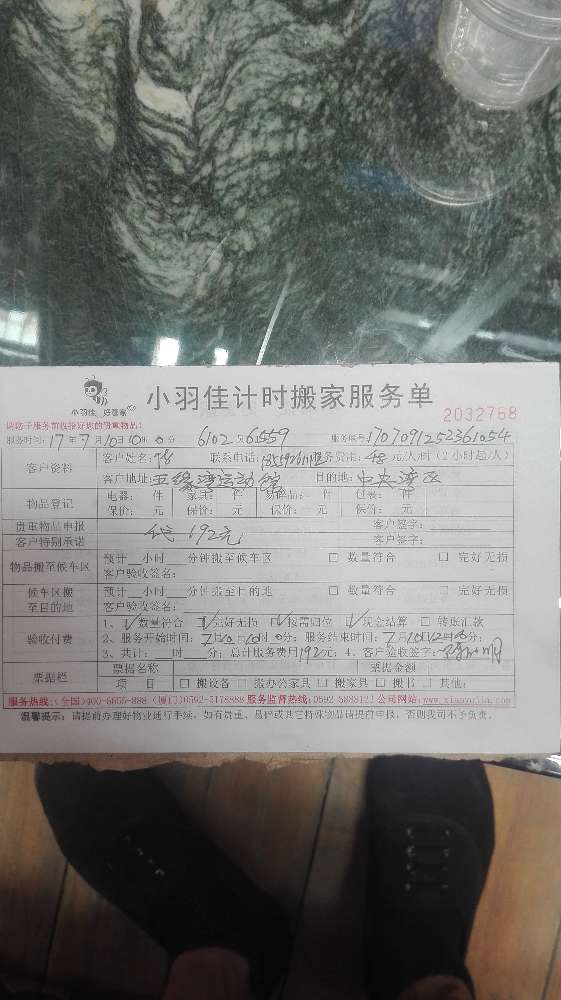 小羽佳 好管家 小羽佳计时搬家服务单
2032768
请您于服务前收捡好您的贵重物品!
服务时间: 17年7月10日10时0分 6102361559 服务编号: 1707091252361054
客户资料 客户姓名: 联系电话: 服务资准: 48元/人/时(2小时起/人)
客户地址: 五缘湾运动馆 目的地: 中央湾区
物品登记 电器: 件 家具: 件 易碎品: 件 包装: 件
保价: 元 保价: 元 保价: 元 保价: 元
贵重物品申报 192元 客户签字:
客户特别承诺 客户签字:
物品搬至候车区 预计 小时 分钟搬至候车区 □ 数量符合 □ 完好无损
客户验收签名:
候车区搬至目的地 预计 小时 分钟搬至目的地 □ 数量符合 □ 完好无损
客户验收签名:
验收付费 1、☑数量符合 ☑完好无损 ☑按需归位 ☑现金结算 □ 转账汇款
2、服务开始时间: 7月10日10时0分; 服务结束时间: 7月10日12时0分;
3、共计: 时 分; 总计服务费用192元 4、客户验收签字:
票据栏 票据名称 票据金额
项 目 □ 搬设备 □ 搬办公家具 □ 搬家具 □ 搬书 □ 其他:
服务热线:(全国)400-6666-888 (厦门)0592-5178888 服务监督热线:0592-5888121 公司网站:www.xiaoyujia.com
温馨提示: 请提前办理好物业进行手续, 如有贵重、易碎或其它特殊物品请提前申报, 否则我司不予负责。